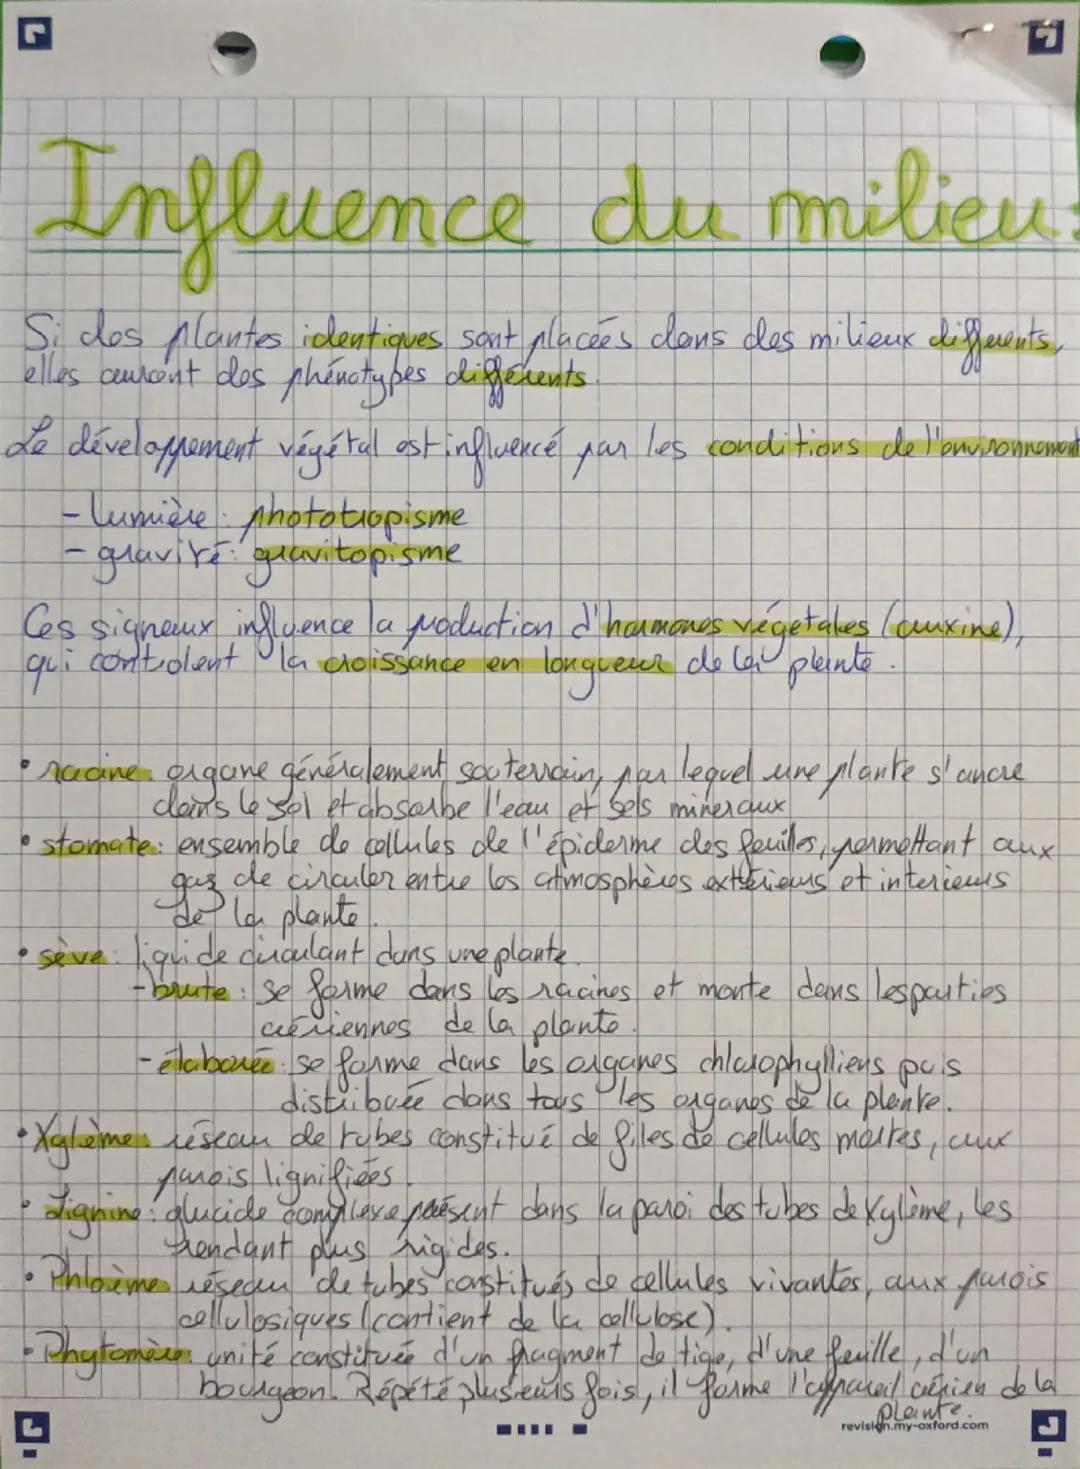 Influence du milieu:
Si des plantes identiques sont placées dans des milieux différents,
elles auront des phénotypes différents.
Le développement végétal est influencé par les conditions de l'environnement
- lumière : phototropisme
- gravité : gravitopisme
Ces signaux influence la production d'hormones végétales (auxine),
qui contrôlent la croissance en longueur de la plante.
• racine : organe généralement souterrain, par lequel une plante s'ancre
dans le sol et absorbe l'eau et sels minéraux
• stomate : ensemble de cellules de l'épiderme des feuilles, permettant aux
gaz de circuler entre les atmosphères extérieurs et interieurs
de la plante.
• sève : liquide circulant dans une plante.
- brute : se forme dans les racines et monte dans les parties
aériennes de la plante.
- élaborée : se forme dans les organes chlorophylliens puis
distribuée dans tous les organes de la plante.
• Xylème : réseau de tubes constitué de files de cellules mortes, aux
parois lignifiées.
• Lignine : glucide complexe présent dans la paroi des tubes de Xylème, les
rendant plus rigides.
• Phloème : réseau de tubes constitués de cellules vivantes, aux parois
cellulosiques (contient de la cellulose).
• Phytomère : unité constituée d'un fragment de tige, d'une feuille, d'un
bourgeon. Répété plusieurs fois, il forme l'appareil aérien de la
plante.
revision.my-oxford.com